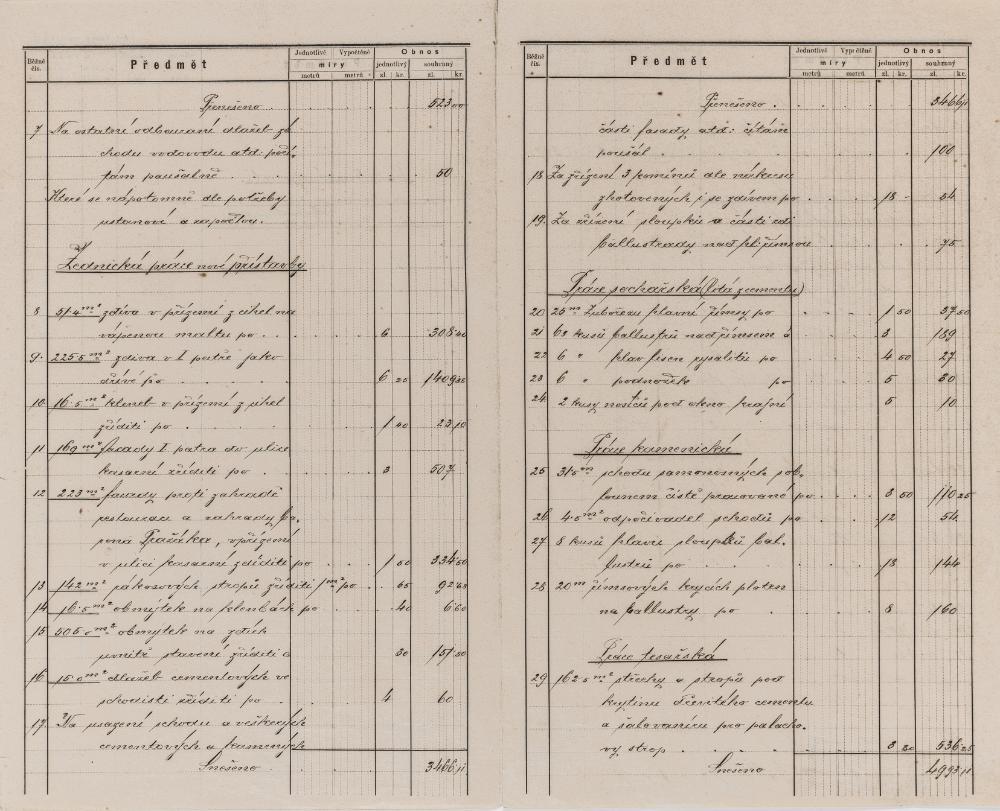 Běžné čís. Předmět Jednotlivé Vypočtěné míry metrů metrů Obnos jednotlivý zl. kr. souhrnný zl. kr.
Přenešeno 523 00
7 Na ostatní odbourání dlažeb zá
chodu vodovodu atd: počí,
tám paušálně 50
Které se nápotomně dle potřeby
ustanoví a započtou.
Zednická práce nové přístavby
8 51·4 m² zdiva v přízemí z cihel na
vápenou maltu po 6 308 40
9. 225·5 m² zdiva v I patře jako
dříve po 6 20 1409 35
10. 16·5 m² kleneb v přízemí z cihel
zříditi po 1 40 23 10
11 169 m² fasady I. patra do ulice
kasarní zříditi po 3 507
12 223 m² fasady proti zahradě
restaurace a zahrady
pana Prašáka, v přízemí
v ulici kasarní zříditi po 1 50 334 50
13 142 m² rákosových stropů zříditi 1 m² po 65 92 63
14 16·5 m² obmýtek na klenbách po 40 6 60
15 505·0 m² obmýtek na zdích
uvnitř stavení zříditi à 30 151 50
16 15·0 m² dlažeb cementových ve
schodišti zříditi po 4 60
17. Na usazení schodu a veškerých
cementových a kamených
Snešeno 3466 11
Běžné čís. Předmět Jednotlivé Vypočtěné míry metrů metrů Obnos jednotlivý zl. kr. souhrnný zl. kr.
Přenešeno 3466 11
části fasady atd: čítám
paušál 100
18 Za zřízení 3 komínů dle nákresu
zhotovených i se zdivem po 18 - 54
19. Za zřízení sloupků a části zdi
ballustrady nad hl: římsou 75
Práce sochařská (lita z cementu)
20 25 m Zubořezu hlavní římsy po 1 50 37 50
21 63 kusů ballustrů nad římsem à 3 189
22 6 " hlav lisen rysalitů po 4 50 27
23 6 " podnožek po 5 30
24. 2 kusy nosičů pod okno krajní 5 10
Práce kamenická
25 31·5 m schodu samonosných
čistě pracované po 3 50 110 25
26 4·5 m² odpočivadel schodů po 12 54
27 8 kusů hlavic sloupků bal.
lustrů po 18 144
28 20 m římsových krycích ploten
na ballustry po 8 160
Práce tesařská
29 162·5 m² střechy a stropů pod
krytinu dřevitého cementu
a šalovanícu pro palacho,
vý strop 3 30 536 25
Snešeno 4993 11